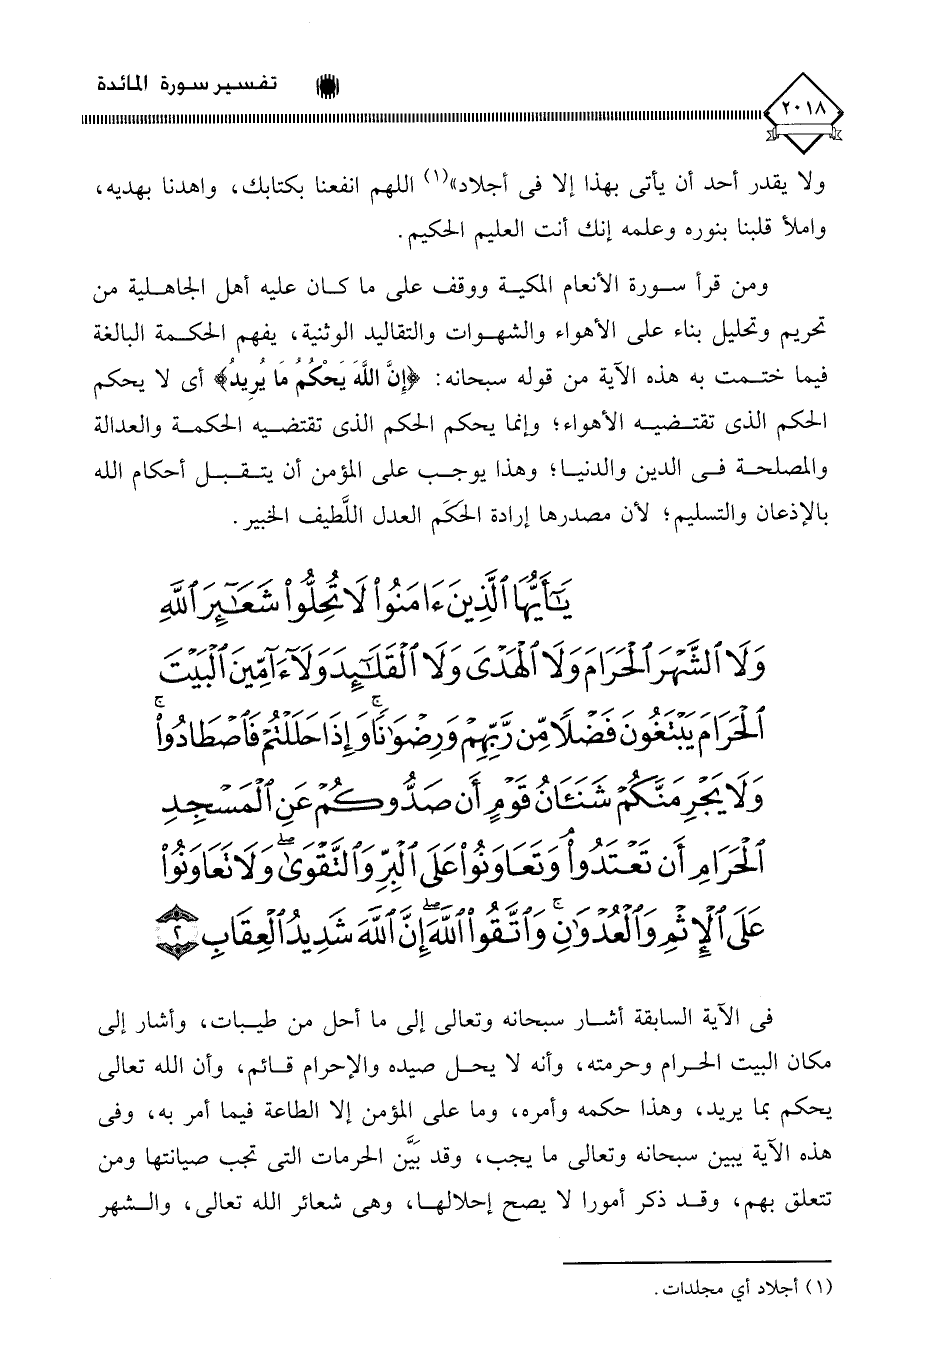 ٢٠١٨
تفسير سورة المائدة
ولا يقدر أحد أن يأتى بهذا إلا فى أجلاد»(١) اللهم انفعنا بكتابك، واهدنا بهديه،
واملأ قلبنا بنوره وعلمه إنك أنت العليم الحكيم.
ومن قرأ سورة الأنعام المكية ووقف على ما كان عليه أهل الجاهلية من
تحريم وتحليل بناء على الأهواء والشهوات والتقاليد الوثنية، يفهم الحكمة البالغة
فيما ختمت به هذه الآية من قوله سبحانه: ﴿إِنَّ اللَّهَ يَحْكُمُ مَا يُرِيدُ﴾ أى لا يحكم
الحكم الذى تقتضيه الأهواء؛ وإنما يحكم الحكم الذى تقتضيه الحكمة والعدالة
والمصلحة فى الدين والدنيا؛ وهذا يوجب على المؤمن أن يتقبل أحكام الله
بالإذعان والتسليم؛ لأن مصدرها إرادة الحَكَم العدل اللَّطيف الخبير.
يَـٰٓأَيُّهَا ٱلَّذِينَ ءَامَنُوا۟ لَا تُحِلُّوا۟ شَعَـٰٓئِرَ ٱللَّهِ
وَلَا ٱلشَّهْرَ ٱلْحَرَامَ وَلَا ٱلْهَدْىَ وَلَا ٱلْقَلَـٰٓئِدَ وَلَآ ءَآمِّينَ ٱلْبَيْتَ
ٱلْحَرَامَ يَبْتَغُونَ فَضْلًا مِّن رَّبِّهِمْ وَرِضْوَٰنًا ۚ وَإِذَا حَلَلْتُمْ فَٱصْطَادُوا۟ ۚ
وَلَا يَجْرِمَنَّكُمْ شَنَـَٔانُ قَوْمٍ أَن صَدُّوكُمْ عَنِ ٱلْمَسْجِدِ
ٱلْحَرَامِ أَن تَعْتَدُوا۟ ۘ وَتَعَاوَنُوا۟ عَلَى ٱلْبِرِّ وَٱلتَّقْوَىٰ ۖ وَلَا تَعَاوَنُوا۟
عَلَى ٱلْإِثْمِ وَٱلْعُدْوَٰنِ ۚ وَٱتَّقُوا۟ ٱللَّهَ ۖ إِنَّ ٱللَّهَ شَدِيدُ ٱلْعِقَابِ ٢
فى الآية السابقة أشار سبحانه وتعالى إلى ما أحل من طيبات، وأشار إلى
مكان البيت الحرام وحرمته، وأنه لا يحل صيده والإحرام قائم، وأن الله تعالى
يحكم بما يريد، وهذا حكمه وأمره، وما على المؤمن إلا الطاعة فيما أمر به، وفى
هذه الآية يبين سبحانه وتعالى ما يجب، وقد بيَّن الحرمات التى تجب صيانتها ومن
تتعلق بهم، وقد ذكر أمورا لا يصح إحلالها، وهى شعائر الله تعالى، والشهر
(١) أجلاد أي مجلدات.